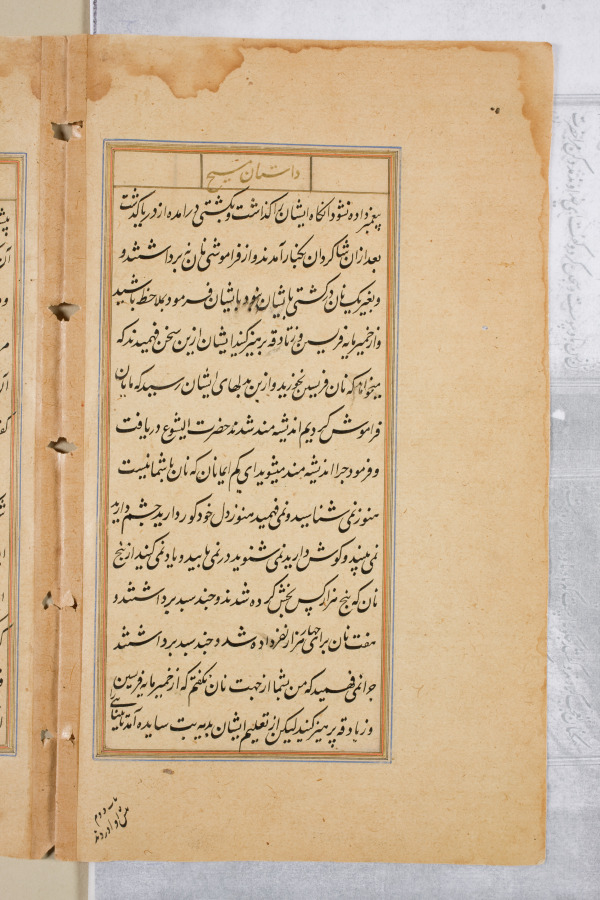 داستان مسیح
پیغمبر داده نشود آنکاه ایشان را کذاشت و بکشتی درآمده از دریا کذشت
بعد از ان شاکردان بکنار آمدند و از فراموشی نان نه برداشتند و
و بغیر یک نان در کشتی با ایشان نبود بایشان فرمود بملاحظه باشید
و از خمیرمایه فریسین و زنادقه پرهیز کنید ایشان ازین سخن فهمیدند که
میخواهد که نان فریسین نخورید و ازین بدلهای ایشان رسید که مایان
فراموش کردیم اندیشه مند شدند حضرت ایشوع دریافت
و فرمود چرا اندیشه مند میشوید ای کم ایمانان که نان با شما نیست
هنوز نمی شناسید و نمی فهمید هنوز دل خود کور دارید چشم دارید
نمی بینید و کوش دارید نمی شنوید در نمی یابید و یاد نمی کنید از پنج
نان که پنج هزار کس بخش کرده شدند و چند سبد برداشتند و
هفت نان برای چهار هزار نفر داده شد و چند سبد برداشتند
چرا نمی فهمید که من بشما از جهت نان نکفتم که از خمیرمایه فریسین
و زنادقه پرهیز کنید لیکن از تعلیم ایشان بدبه بیت سایده آمد نابینای